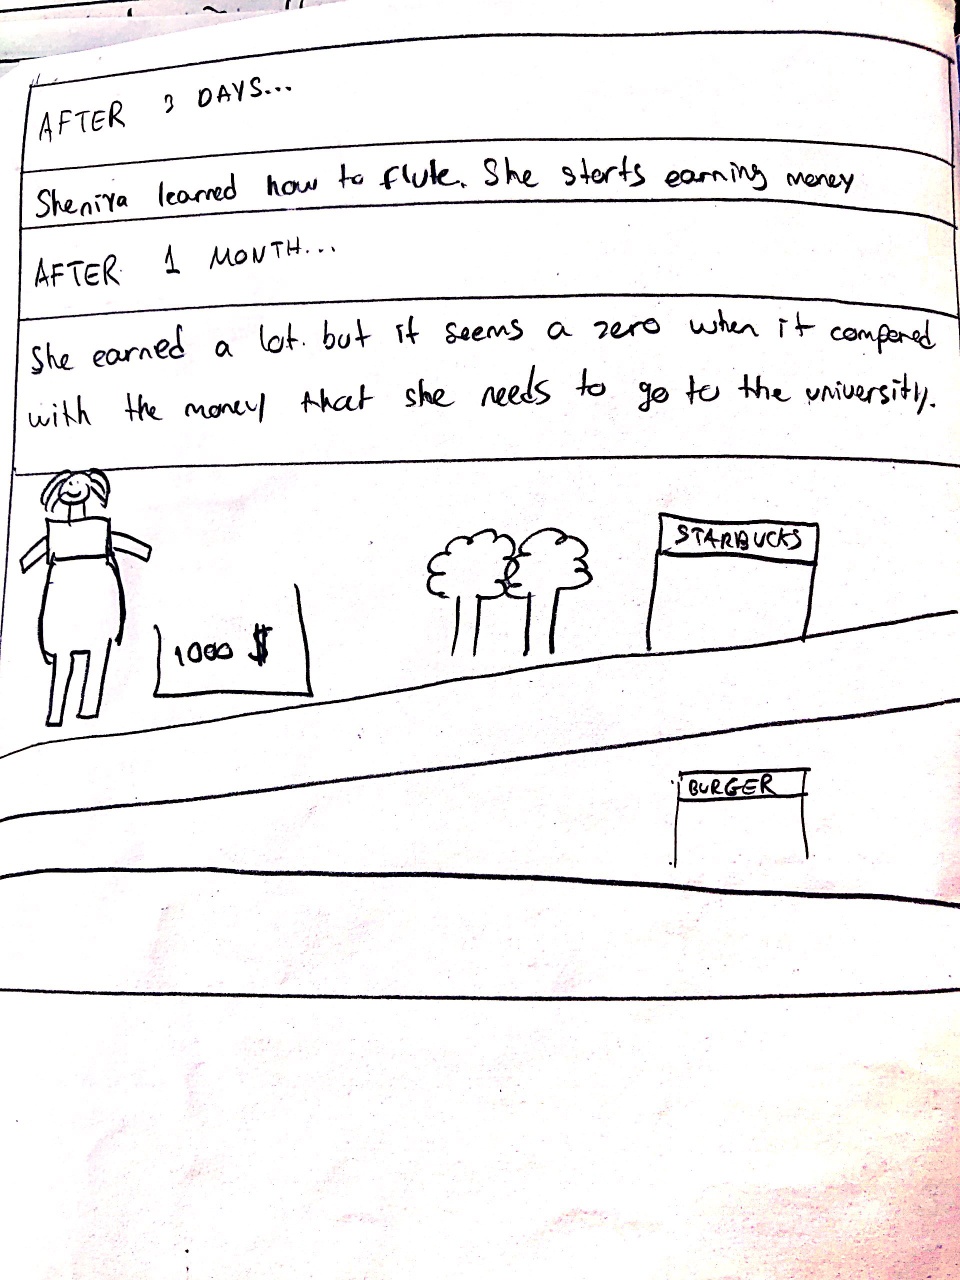 AFTER 3 DAYS...
Sheniya learned how to flute. She sterts earning money
AFTER 1 MONTH...
She earned a lot. but it seems a zero when it compered
with the money that she needs to go to the university.
STARBUCKS
1000 $
BURGER